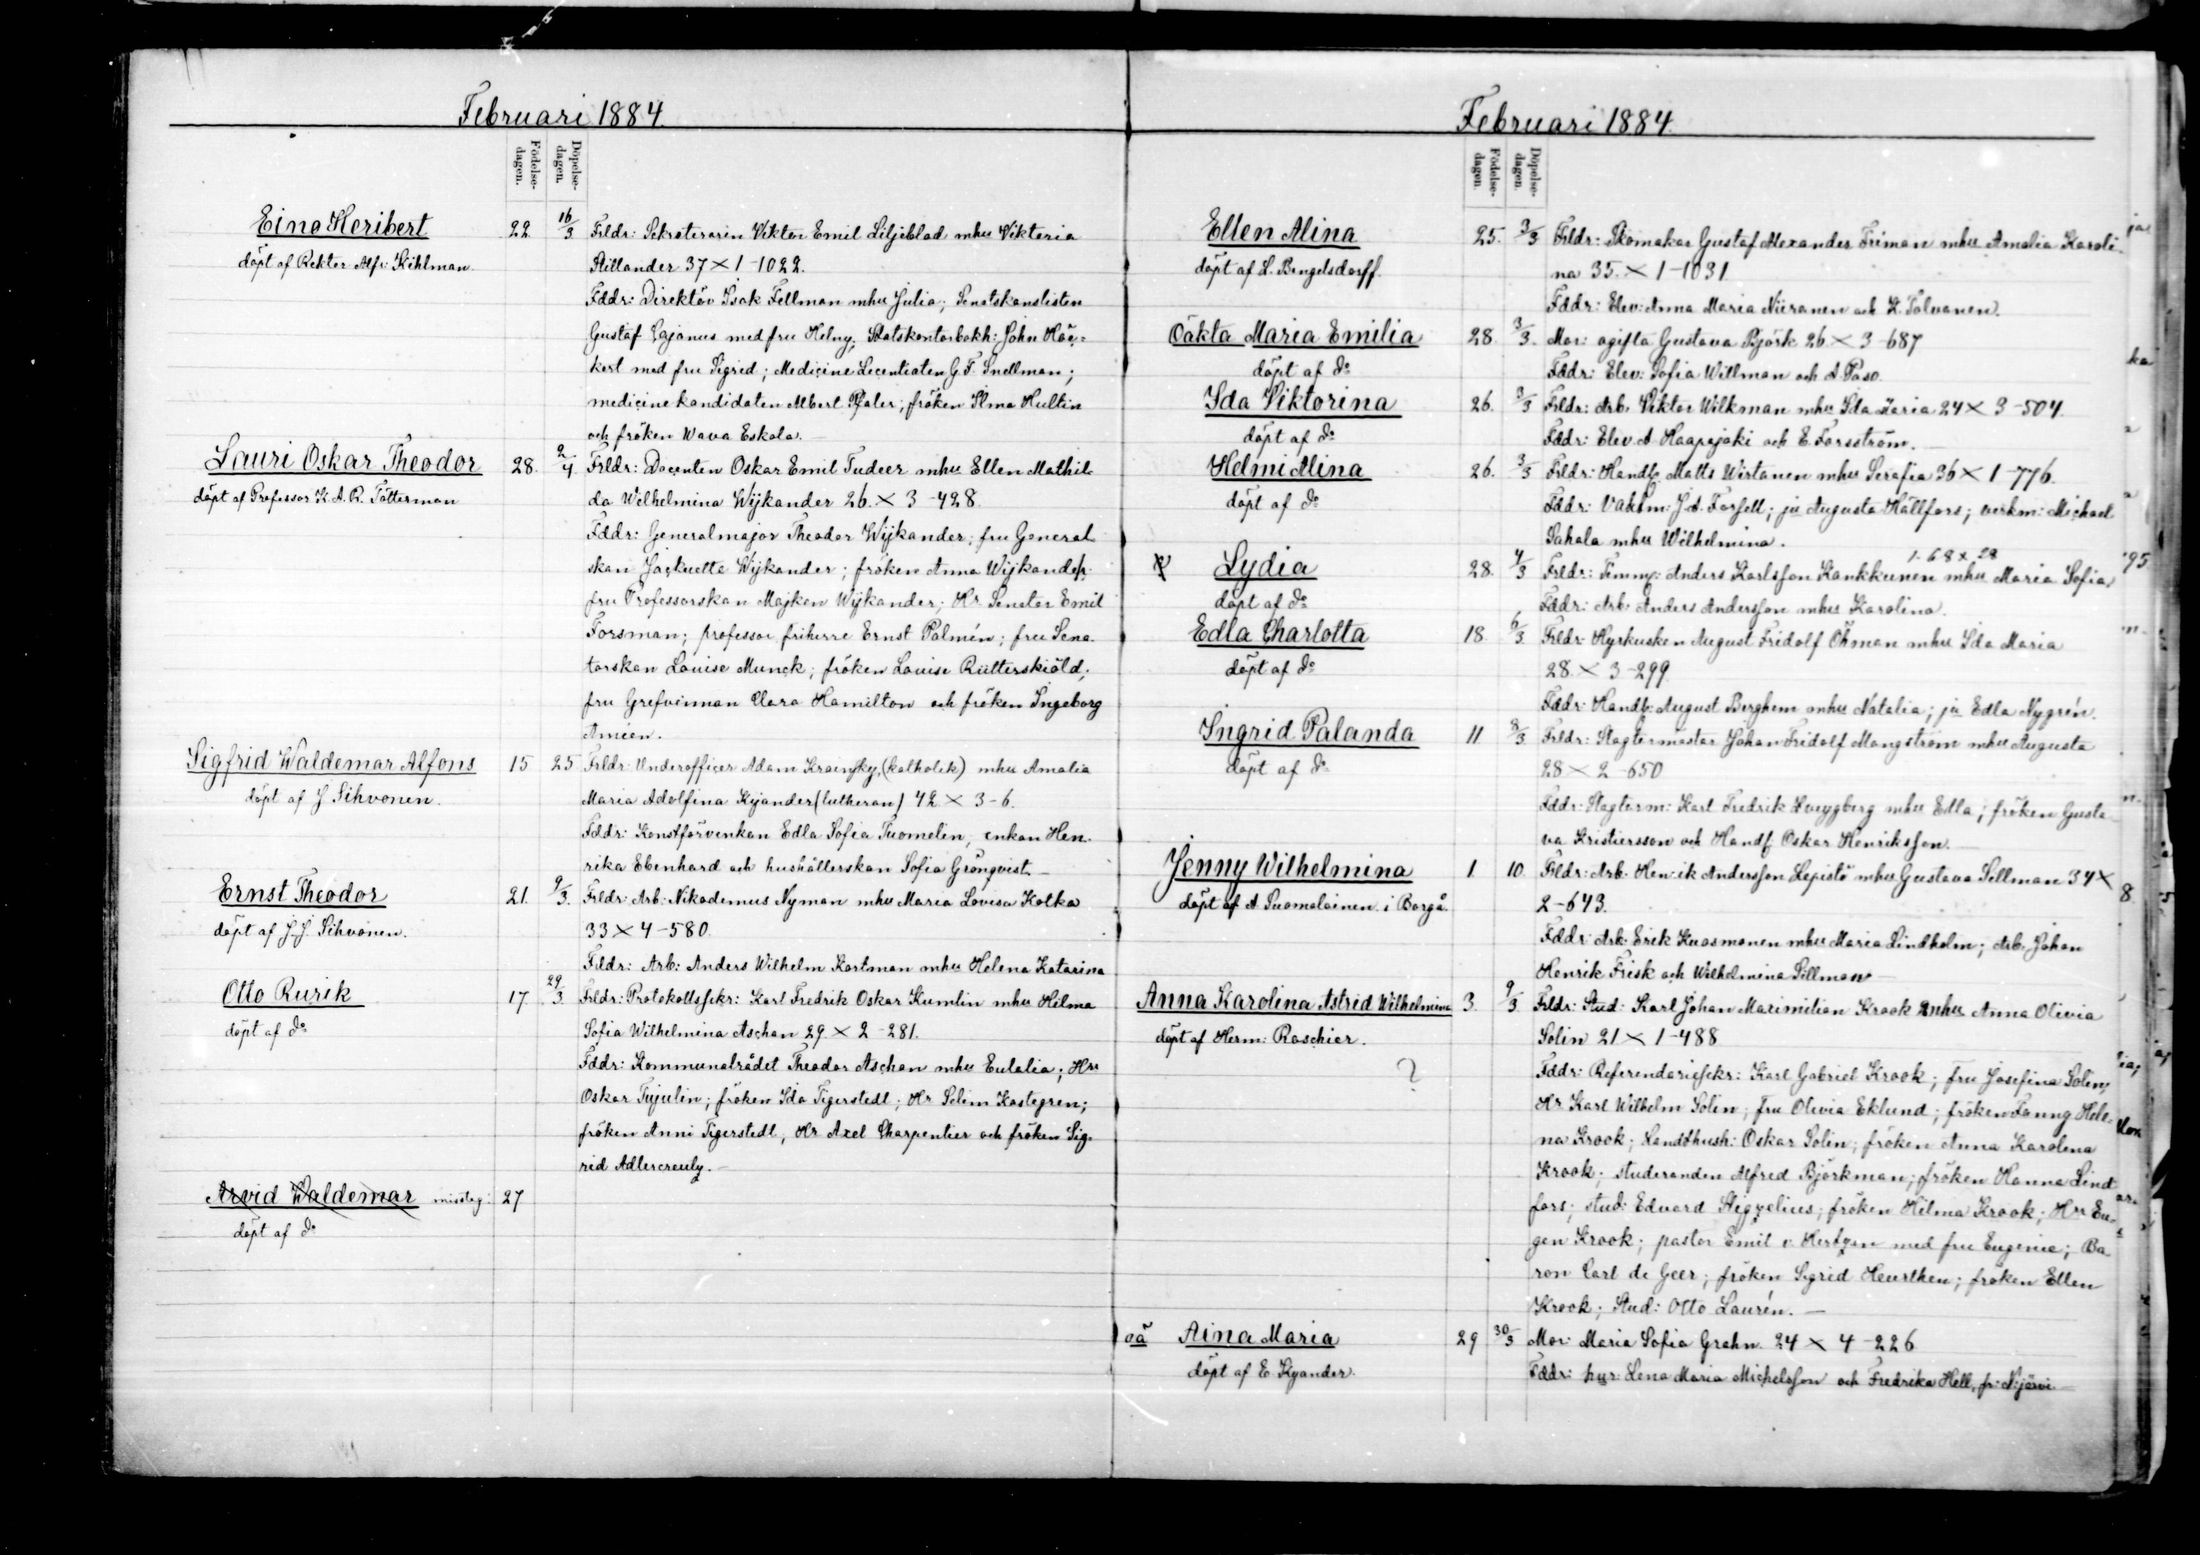 Februari 1884.
Födelse-dagen.
Döpelse-dagen.
Eino Heribert 22 16/3 Frldr: Sekreteraren Viktor Emil Liljeblad mhu Viktoria
döpt af Rektor Alfr: Kihlman. Stillander 37 × 1-1022.
Fddr: Direktör Isak Fellman mhu Julia; Senatskanslisten
Gustaf Cajanus med fru Helny; Statskontorbokh: John Häc-
kert med fru Sigrid; Medicine Licentiaten G. F. Snellman;
medicine kandidaten Albert Pfaler; fröken Ilma Hultin
och fröken Wava Eskola.
Lauri Oskar Theodor 28. 2/4 Frldr: Docenten Oskar Emil Tudeer mhu Ellen Mathil-
döpt af Professor K. A. R. Tötterman da Wilhelmina Wijkander 26. × 3-428.
Fddr: Generalmajor Theodor Wijkander; fru General-
skan Jackuette Wijkander; fröken Anna Wijkander;
fru Professorskan Majken Wijkander; Hr Senator Emil
Forsman; professor friherre Ernst Palmén; fru Sena-
torskan Louise Munck; fröken Louise Rütterskiöld;
fru Grefvinnan Clara Hamilton och fröken Ingeborg
Ameen.
Sigfrid Waldemar Alfons 15 25 Frldr: Underofficer Adam Krainsky, (katholik) mhu Amalia
döpt af J Sihvonen. Maria Adolfina Kyander (lutheran) 42 × 3-6.
Fddr: Konstförvenkan Edla Sofia Tuomelin, enkan Hen-
rika Ebenhard och hushållerskan Sofia Grönqvist.
Ernst Theodor 21. 9/3. Frldr: Arb: Nikodemus Nyman mhu Maria Lovisa Kolka
döpt af J. J. Sihvonen. 33 × 4-580.
Fddr: Arb: Anders Wilhelm Kortman mhu Helena Katarina
Otto Rurik 17 29/3 Frldr: Protokollssekr: Karl Fredrik Oskar Kumlin mhu Hilma
döpt af do Sofia Wilhelmina Aschan 29. × 2-281.
Fddr: Kommunalrådet Theodor Aschan mhu Eulalia; Hrr
Oskar Tujulin; fröken Ida Tigerstedt; Hr Selim Kastegren;
fröken Anni Tigerstedt, Hr Axel Charpentier och fröken Sig-
rid Adlercreutz.
Arvid Waldemar misstag: 27
döpt af do
Februari 1884.
Födelse-dagen.
Döpelse-dagen.
Ellen Alina 25. 3/3 Frldr: Skomakar Gustaf Alexander Friman mhu Amalia Karoli-
döpt af L. Bengelsdorff. na 35. × 1-1031
Fddr: Elev: Anna Maria Niiranen och K. Tolvanen.
Oäkta Maria Emilia 28. 3/3. Mor: ogifta Gustava Björk 26 × 3-687
döpt af do Fddr: Elev: Sofia Willman och A. Paso.
Ida Viktorina 26. 3/3 Frldr: Arb: Viktor Wilkman mhu Ida Maria 24 × 3-504.
döpt af do Fddr: Elev. A Haapajoki och E. Forsström.
Helmi Alina 26. 3/3 Frldr: Handb. Matts Wirtanen mhu Serafia 36 × 1-776.
döpt af do Fddr: Vaktm: J. A. Forsell; ju Augusta Hällfors; verkm: Michael
Sahala mhu Wilhelmina.
1-68 × 28
Lydia 28. 4/3 Frldr: Timmg: Anders Karlsson Kankkunen mhu Maria Sofia,
döpt af do Fddr: Arb. Anders Andersson mhu Karolina.
Edla Charlotta 18. 6/3 Frldr: Hyrkusken August Fridolf Öhman mhu Ida Maria
döpt af do 28. × 3-299.
Fddr: Handb: August Berghem mhu Natalia; ju Edla Nygrén.
Ingrid Palanda 11. 8/3. Frldr: Slagtermästar Johan Fridolf Mangström mhu Augusta
döpt af do 28 × 2-650
Fddr: Slagterm: Karl Fredrik Kveygberg mhu Edla; fröken Gusta-
va Kristiersson och Handf Oskar Henriksson.
Jenny Wilhelmina 1. 10. Frldr: Arb. Henrik Andersson Lepistö mhu Gustava Sillman 34 ×
döpt af A. Suomalainen. i Borgå. 2-643.
Fddr: Arb: Erik Kuosmanen mhu Maria Lindholm; Arb. Johan
Henrik Frisk och Wilhelmina Sillman
Anna Karolina Astrid Wilhelmina 3. 9/3 Frldr: Stud: Karl Johan Maximilian Krook mhu Anna Olivia
döpt af Herm: Roschier. Solin 21 × 1-488
? Fddr: Referendariesekr: Karl Gabriel Krook; fru Josefina Solin;
Hr Karl Wilhelm Solin; fru Olivia Eklund; fröken Fanny Hele-
na Krook; Landthush: Oskar Solin; fröken Anna Karolina
Krook; studeranden Alfred Björkman; fröken Hanna Lind-
fors; stud: Edvard Stigzelius; fröken Hilma Krook; Hr Eu-
gen Krook; pastor Emil v. Hertzen med fru Eugenie; Ba-
ron Carl de Geer; fröken Sigrid Heurthen; fröken Ellen
Krook; Stud: Otto Laurén.
oä Aina Maria 29 30/3 Mor: Maria Sofia Grahn. 24 × 4-226
döpt af E Kyander. Fddr: hur: Lena Maria Michelsson och Fredrika Hell, fr: N:järvi